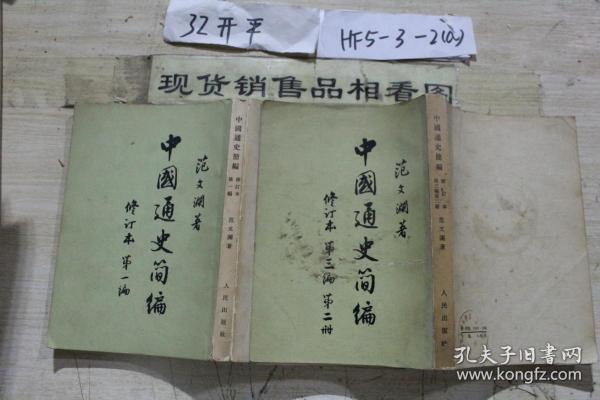 32开平
HF5-3-2(0.)
现货销售品相看图
范文澜著
中國通史简编
修订本 第一编
中國通史簡編
修訂本
第一編
范文瀾著
人民出版社
范文澜著
中國通史简编
修订本 第三编 第二册
中國通史簡編
修訂本
第三編第二冊
范文瀾著
人民出版社
孔夫子旧书网
www.kongfz.com